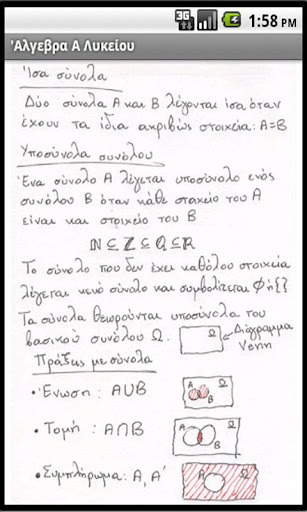 3G 1:58 PM
'Αλγεβρα Α Λυκείου
Ίσα σύνολα
Δύο σύνολα Α και Β λέγονται ίσα όταν
έχουν τα ίδια ακριβώς στοιχεία: Α=Β
Υποσύνολα συνόλου
Ένα σύνολο Α λέγεται υποσύνολο ενός
συνόλου Β όταν κάθε στοιχείο του Α
είναι και στοιχείο του Β
ℕ⊆ℤ⊆ℚ⊆ℝ
Το σύνολο που δεν έχει καθόλου στοιχεία
λέγεται κενό σύνολο και συμβολίζεται Φ ή {}
Τα σύνολα θεωρούνται υποσύνολα του
βασικού συνόλου Ω. Ω Διάγραμμα
Venn
Πράξεις με σύνολα
• Ένωση: Α∪Β Α Β Ω
• Τομή: Α∩Β Α Β Ω
• Συμπλήρωμα: Α, Α' Α Ω